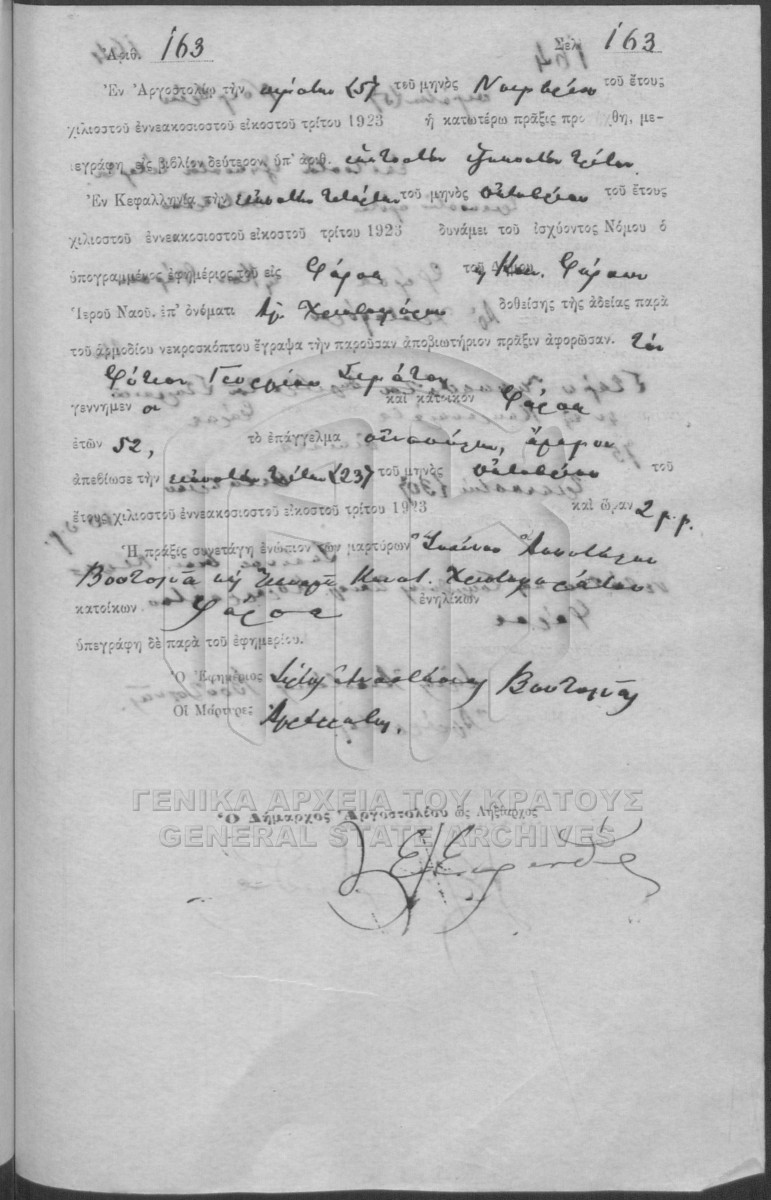 Ἀριθ. 163 Σελ. 163
Ἐν Ἀργοστολίῳ τὴν πέμπτην (5) τοῦ μηνὸς Νοεμβρίου τοῦ ἔτους
χιλιοστοῦ ἐννεακοσιοστοῦ εἰκοστοῦ τρίτου 1923 ἡ κατωτέρω πρᾶξις προ χθη, με-
ιεγράφη εἰς βιβλίον δεύτερον ὑπ' ἀριθ. ἑκατοστὸν ἑξηκοστὸν τρίτον
Ἐν Κεφαλληνίᾳ τὴν εἰκοστὴν τετάρτην τοῦ μηνὸς Ὀκτωβρίου τοῦ ἔτους
χιλιοστοῦ ἐννεακοσιοστοῦ εἰκοστοῦ τρίτου 1923 δυνάμει τοῦ ἰσχύοντος Νόμου ὁ
ὑπογραμμένος ἐφημέριος τοῦ εἰς Φάρσα τοῦ Φάρσων
Ἱεροῦ Ναοῦ, ἐπ' ὀνόματι Ἁγ. δοθείσης τῆς ἀδείας παρὰ
τοῦ ἁρμοδίου νεκροσκόπτου ἔγραψα τὴν παροῦσαν ἀποβιωτήριον πρᾶξιν ἀφορῶσαν. τὸν
Φώτιον Γεωργίου
γεννημεν οι καὶ κάτοικον Φάρσα
ἐτῶν 52, τὸ ἐπάγγελμα οἰνοπώλην, ἄγαμον
ἀπεβίωσε τὴν εἰκοστὴν τρίτην (23) τοῦ μηνὸς Ὀκτωβρίου τοῦ
ἔτους χιλιοστοῦ ἐννεακοσιοστοῦ εἰκοστοῦ τρίτου 1923 καὶ ὥραν 2 μ.μ.
Ἡ πρᾶξις συνετάγη ἐνώπιον τῶν μαρτύρων Ἰωάννου Ἀποστόλου
κατοίκων Φάρσα ἐνηλίκων
ὑπεγράφη δὲ παρὰ τοῦ ἐφημερίου.
Ὁ Ἐφημέριος Ἀναστάσιος
Οἱ Μάρτυρες
ΓΕΝΙΚΑ ΑΡΧΕΙΑ ΤΟΥ ΚΡΑΤΟΥΣ
Ὁ Δήμαρχος Ἀργοστολίου ὡς Ληξίαρχος
GENERAL STATE ARCHIVES